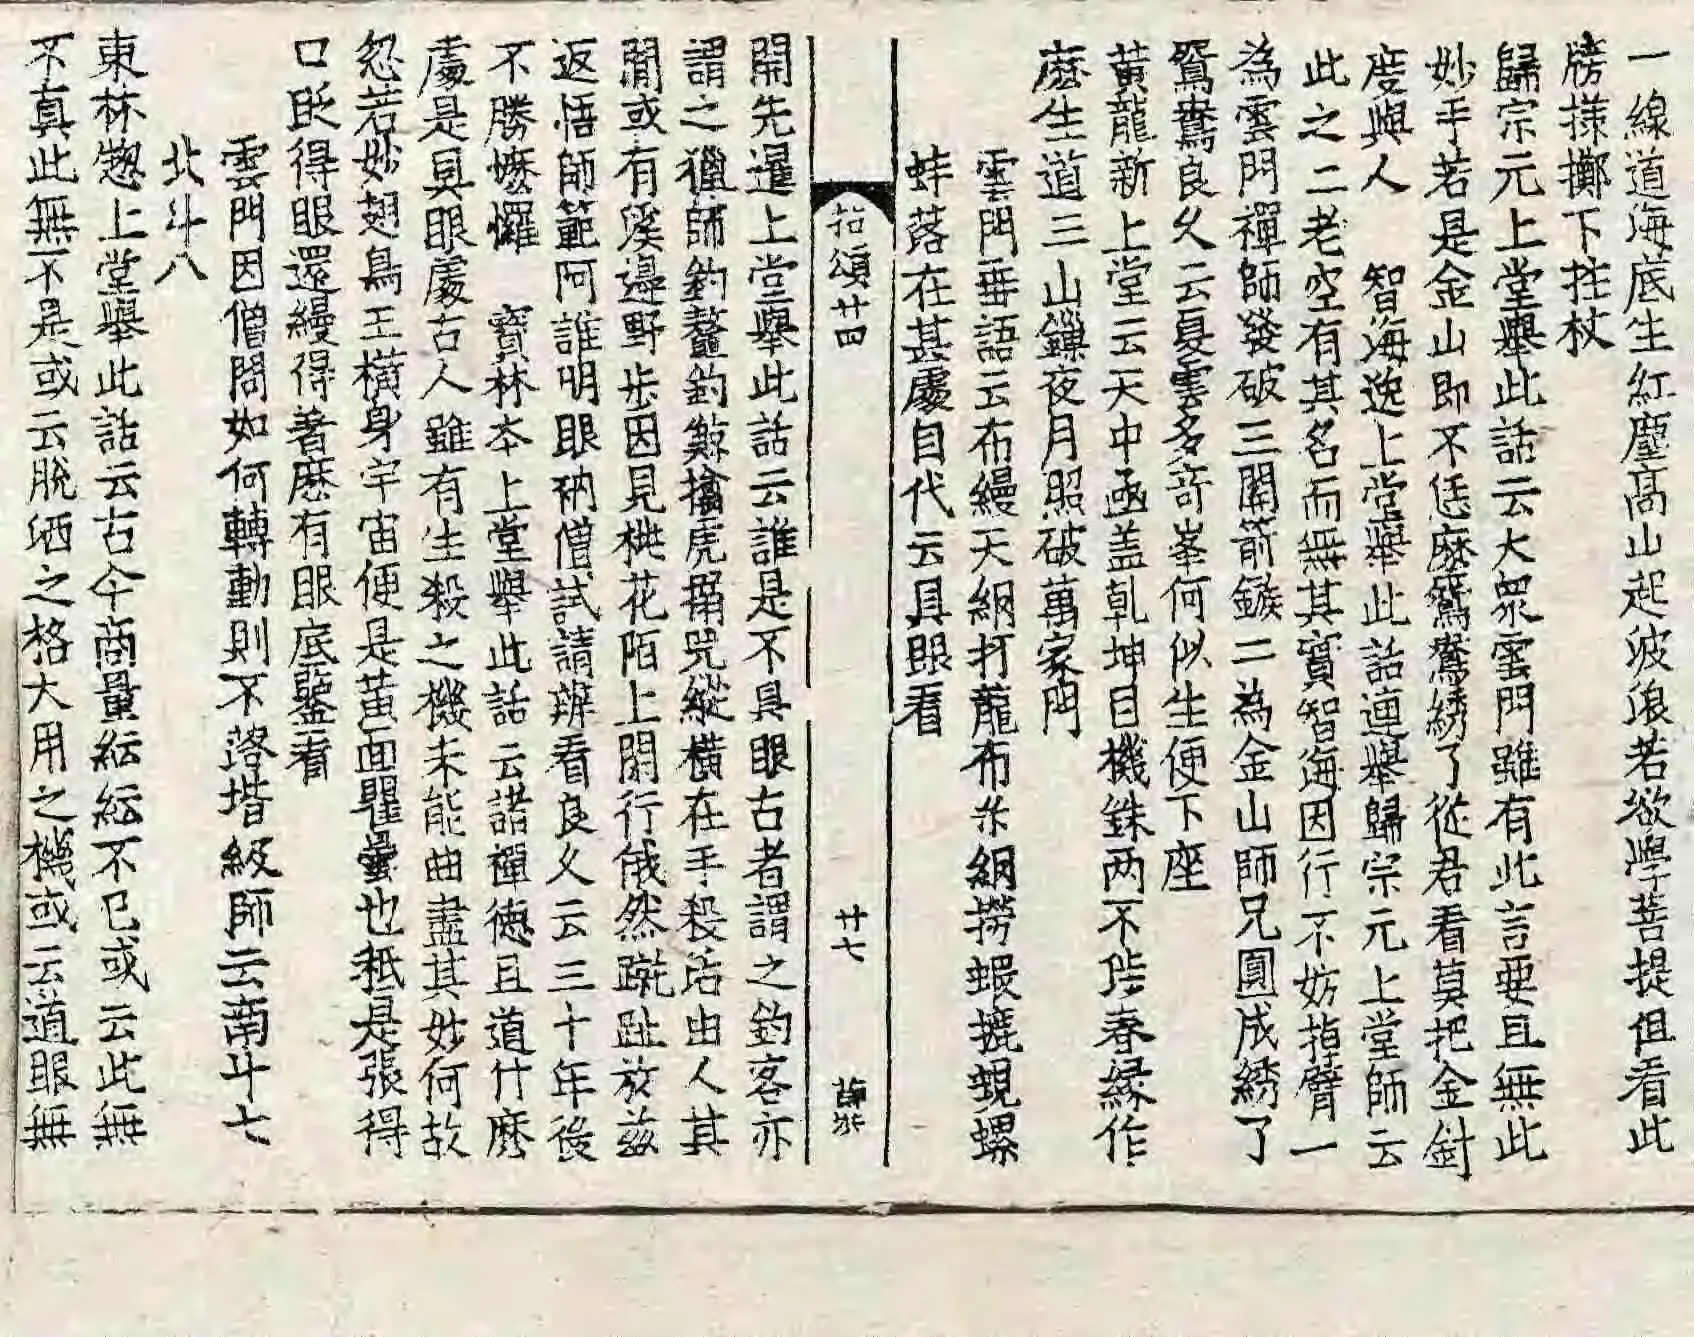 一線道海底生紅塵高山起波浪若欲學菩提但看此
牓㨾擲下拄杖
歸宗元上堂舉此話云大衆雲門雖有此言要且無此
妙手若是金山即不恁麽鴛鴦綉了從君看莫把金針
度與人　智海逸上堂舉此話連舉歸宗元上堂師云
此之二老空有其名而無其實智海因行不妨掉臂一
為雲門禪師發破三關箭鏃二為金山師兄圓成綉了
鴛鴦良久云夏雲多竒峯何似生便下座
黃龍新上堂云天中凾盖乹坤目機銖两不陟春緣作
麽生道三山鏁夜月照破萬家門
雲門垂語云布縵天網打龍布糸網撈蝦摝蜆螺
蚌落在甚處自代云具眼看
拈頌廿四
廿七
開先暹上堂舉此話云誰是不具眼古者謂之釣客亦
謂之獵師釣鼇釣鯨擒虎𦥷兕縱橫在手殺活由人其
閒或有溪邊野步因見桃花陌上閑行俄然蹴趾放兹
返悟師範阿誰明眼衲僧試請辨看良久云三十年後
不勝懡㦬　寶林夲上堂舉此話云諸禪德且道什麽
處是具眼處古人雖有生殺之機未能曲盡其妙何故
忽若妙翅鳥王橫身宇宙便是黃面瞿曇也秪是張得
口眨得眼還縵得著麽有眼底鑒看
雲門因僧問如何轉動則不落堦級師云南斗七
北斗八
東林惣上堂舉此話云古今商量紜紜不已或云此無
不真此無不是或云脫洒之格大用之機或云道眼無